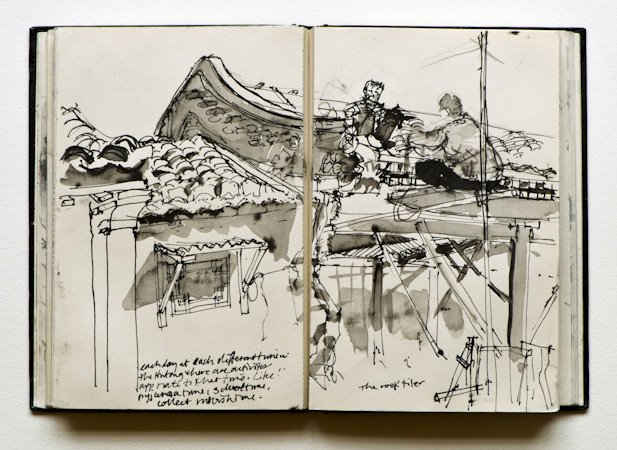 each day at each different time in
the Hutong there are activities
to that time. Like
time, school time,
collect rubbish time.
The roof tiler